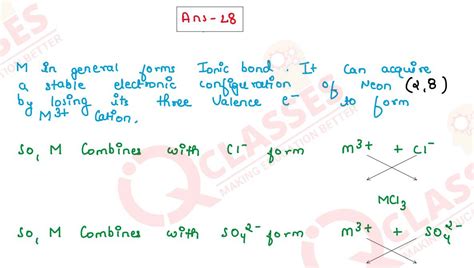 Ans-28
M in general forms Ionic bond. It can acquire
a stable electronic configuration of Neon (2,8)
by losing its three valence e⁻ to form
M³⁺ Cation.
So, M Combines with Cl⁻ form M³⁺ + Cl⁻
MCl₃
So, M Combines with SO₄²⁻ form M³⁺ + SO₄²⁻
IQ CLASSES
MAKING EDUCATION BETTER